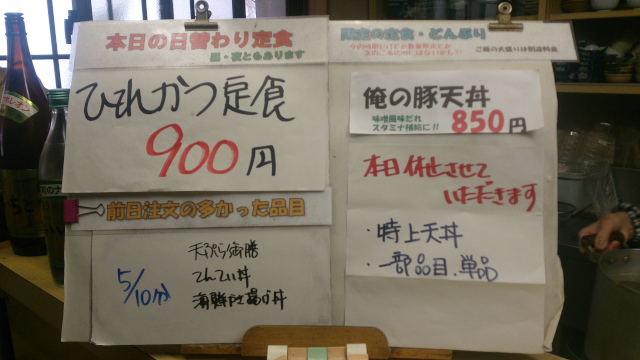 本日の日替わり定食
昼・夜ともあります
ひれかつ定食
900円
前日注文の多かった品目
5/10分
天ぷら御膳
てんてい丼
海鮮かき揚げ丼
限定の定食・どんぶり
ご飯の大盛りは別途料金
俺の豚天丼
味噌風味だれ
スタミナ補給に!!
850円
本日休止させて
いただきます
・特上天丼
・一部品目、単品